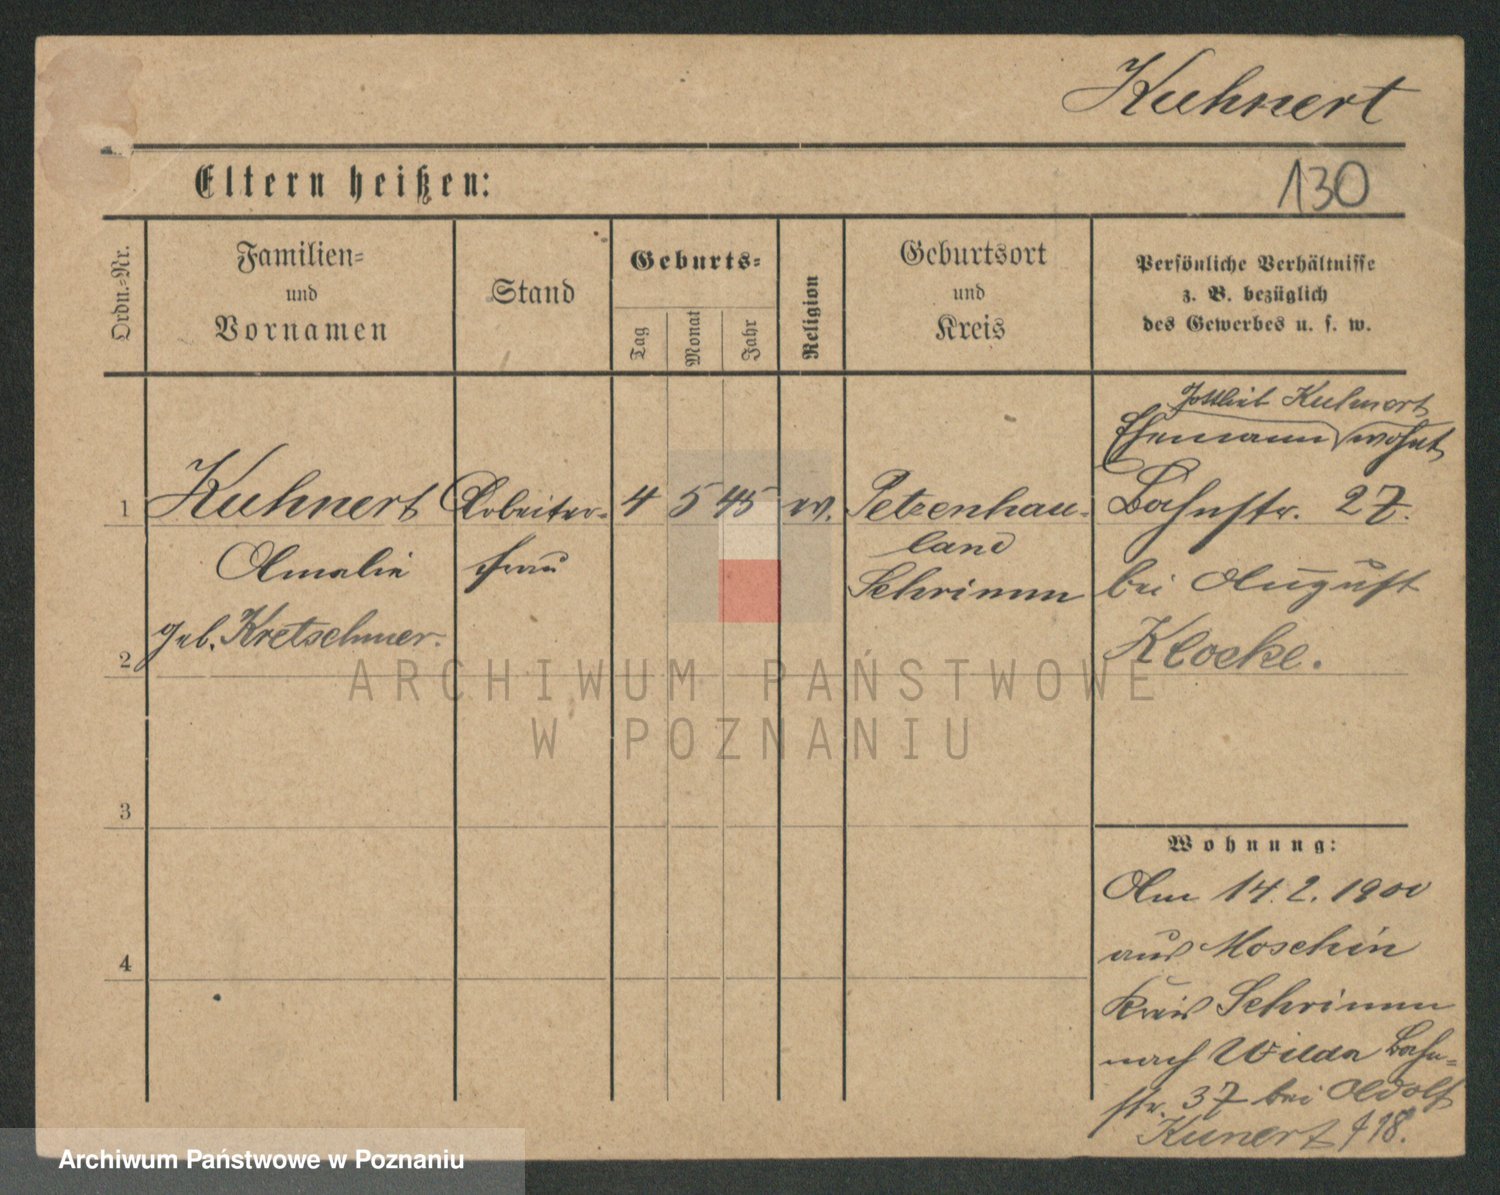 Kuhnert
Eltern heißen:
130
Ordn.-Nr.
Familien-
und
Vornamen
Stand
Geburts-
Tag
Monat
Jahr
Religion
Geburtsort
und
Kreis
Persönliche Verhältnisse
z. B. bezüglich
des Gewerbes u. s. w.
1
Kuhnert
Amalie
geb. Kretschmer.
Arbeiter-
frau
4 5 45 ev.
Petzenhau-
land
Schrimm
Gottlieb Kuhnert
Ehemann wohnt
Bahnstr. 27.
bei August
Klocke.
2
3
4
Wohnung:
Am 14.2. 1900
aus Moschin
Kreis Schrimm
nach Wilda Bahn-
str. 37 bei Adolf
Kunert
ARCHIWUM PAŃSTWOWE
W POZNANIU
Archiwum Państwowe w Poznaniu